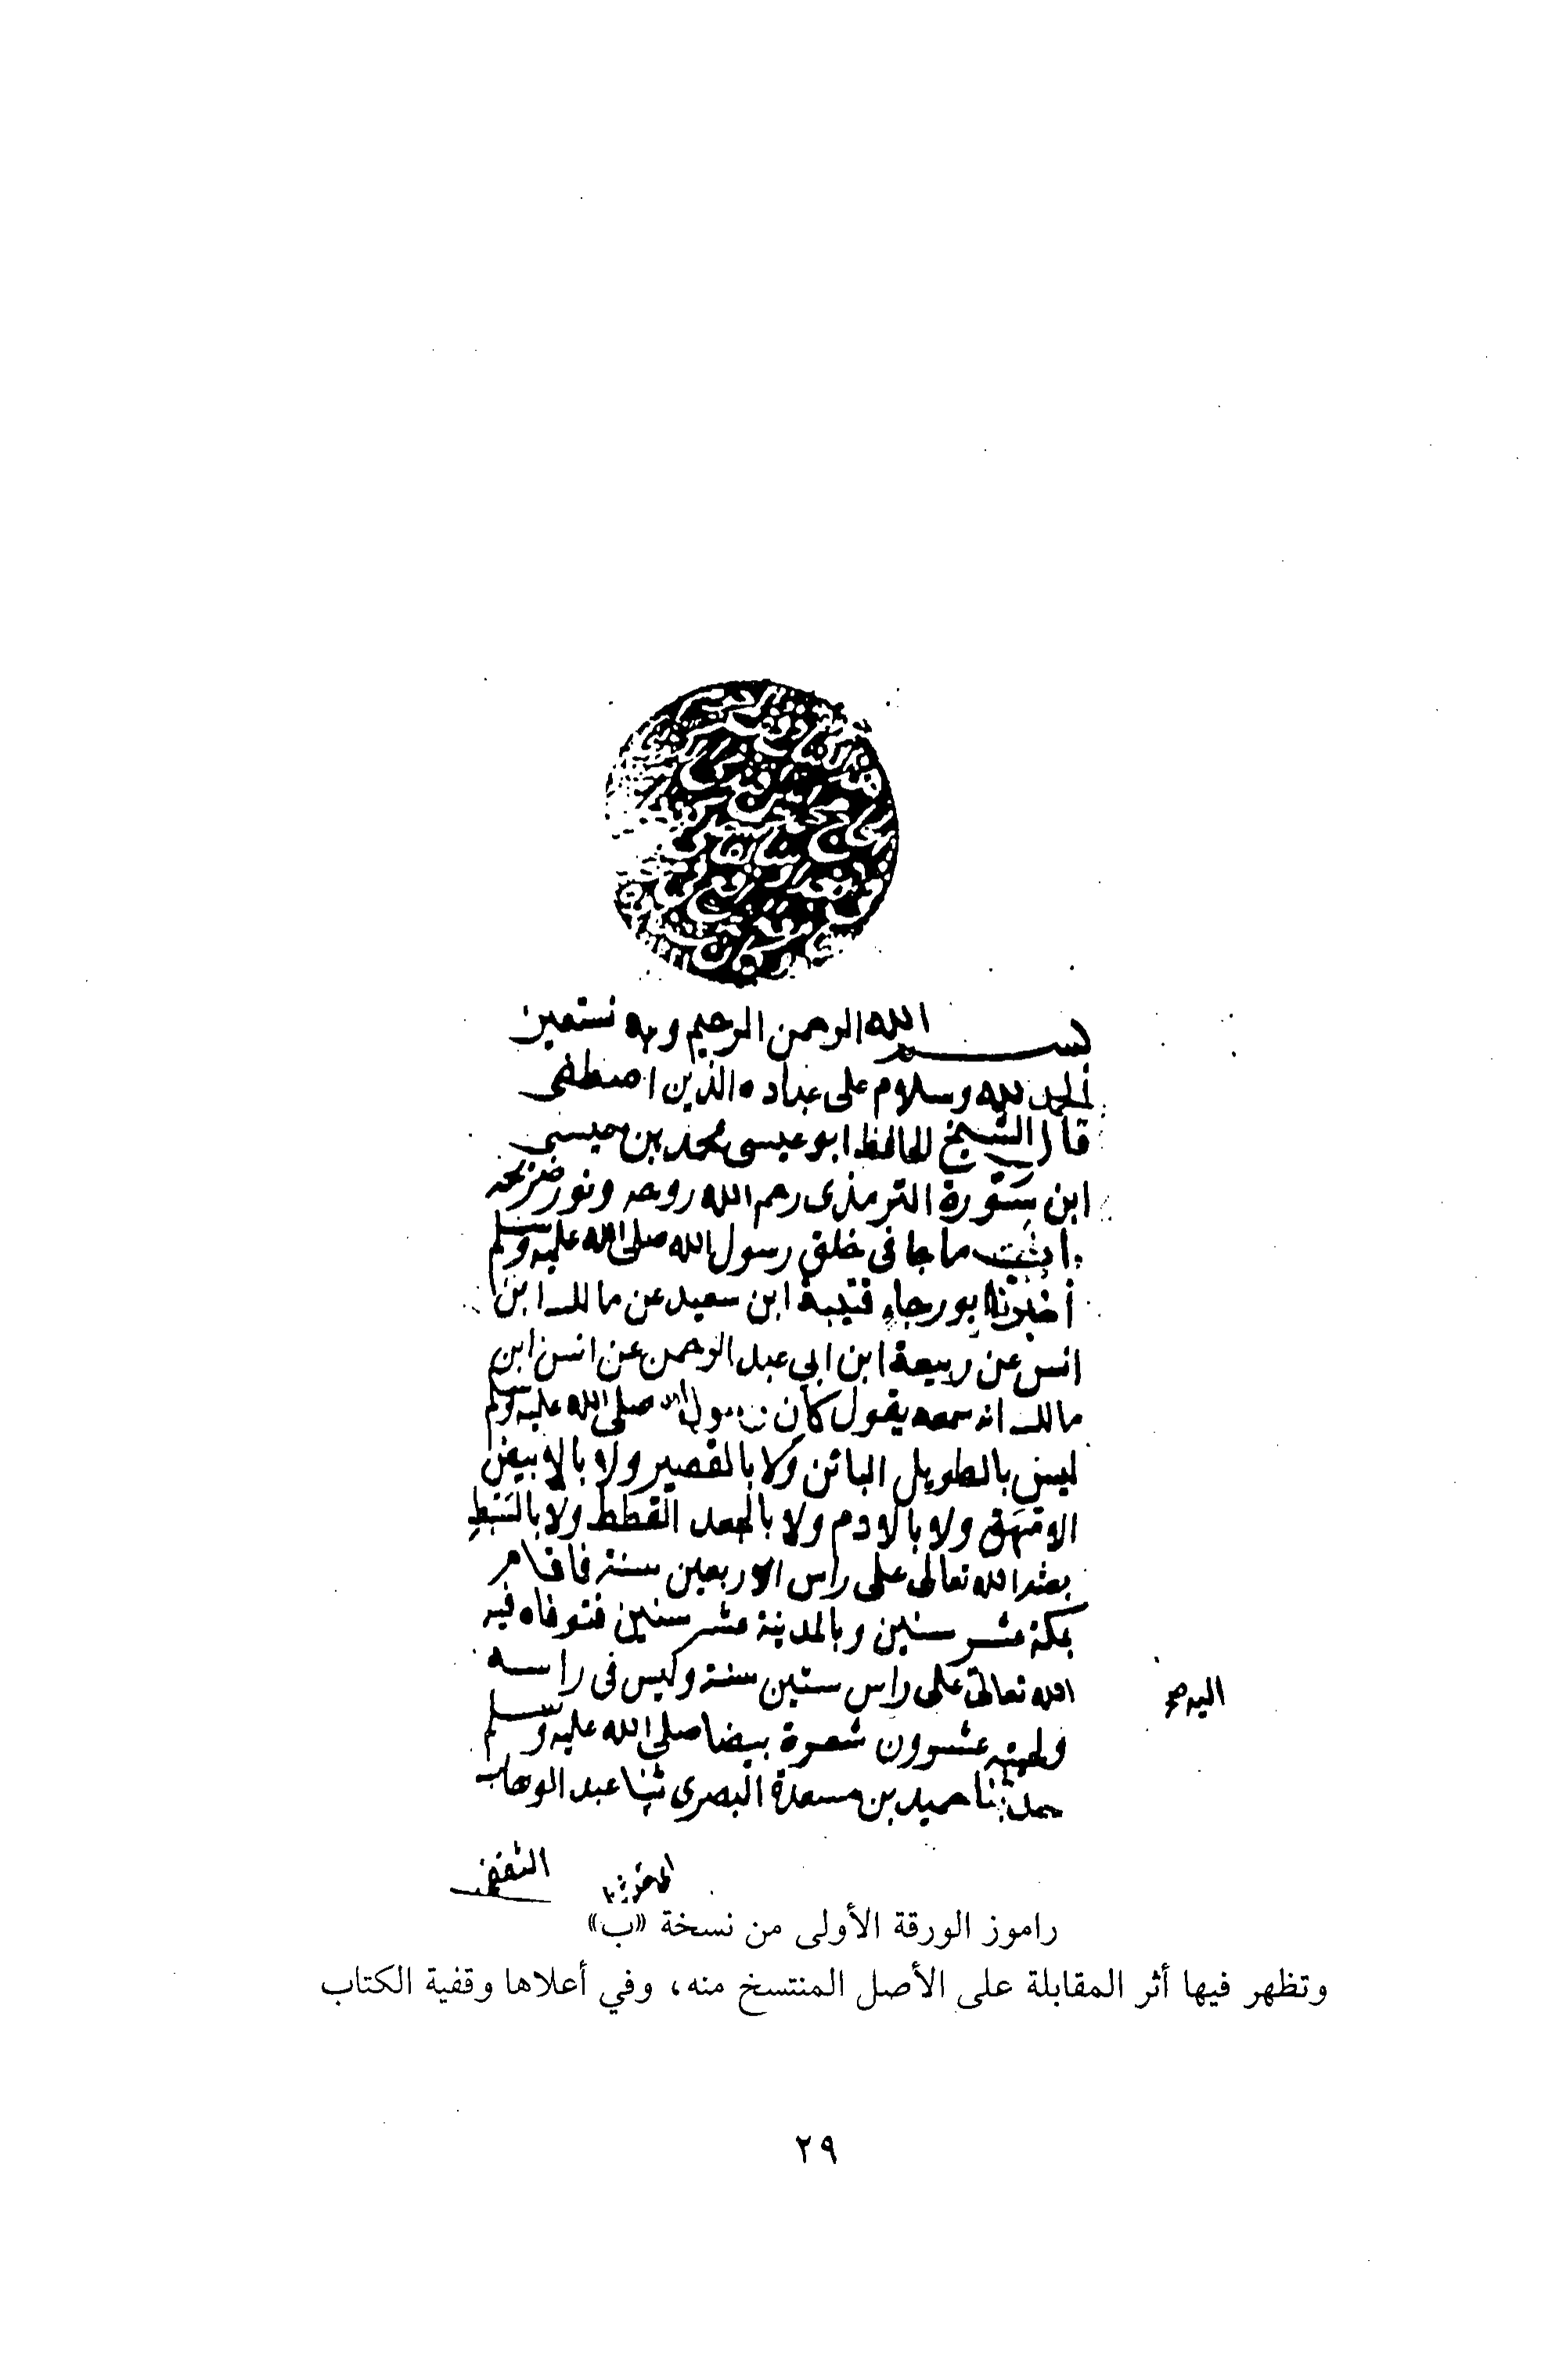 بسم الله الرحمن الرحيم وبه نستعين
الحمد لله وسلام على عباده الذين اصطفى
قال الشيخ الحافظ ابو عيسى محمد بن عيسى
ابن سورة الترمذى رحم الله روحه ونور ضريحه
باب ما جا فى خلق رسول الله صلى الله عليه وسلم
أخبرنا ابو رجاء قتيبة ابن سعيد عن مالك ابن
انس عن ربيعة ابن ابي عبد الرحمن عن انس ابن
مالك انه سمعه يقول كان رسول الله صلى الله عليه وسلم
ليس بالطويل البائن ولا بالقصير ولا بالابيض
الامهق ولا بالادم ولا بالجعد القطط ولا بالسبط
بعثه الله تعالى على راس الاربعين سنة فاقام
بمكة عشر سنين وبالمدينة عشر سنين فتوفاه فيه
الله تعالى على راس ستين سنة وليس فى راسه
ولحيته عشرون شعرة بيضا صلى الله عليه وسلم
حدثنا حميد بن مسعدة البصرى ثنا عبد الوهاب
الثقفى
راموز الورقة الأولى من نسخة «ب»
وتظهر فيها أثر المقابلة على الأصل المنتسخ منه، وفي أعلاها وقفية الكتاب
٢٩